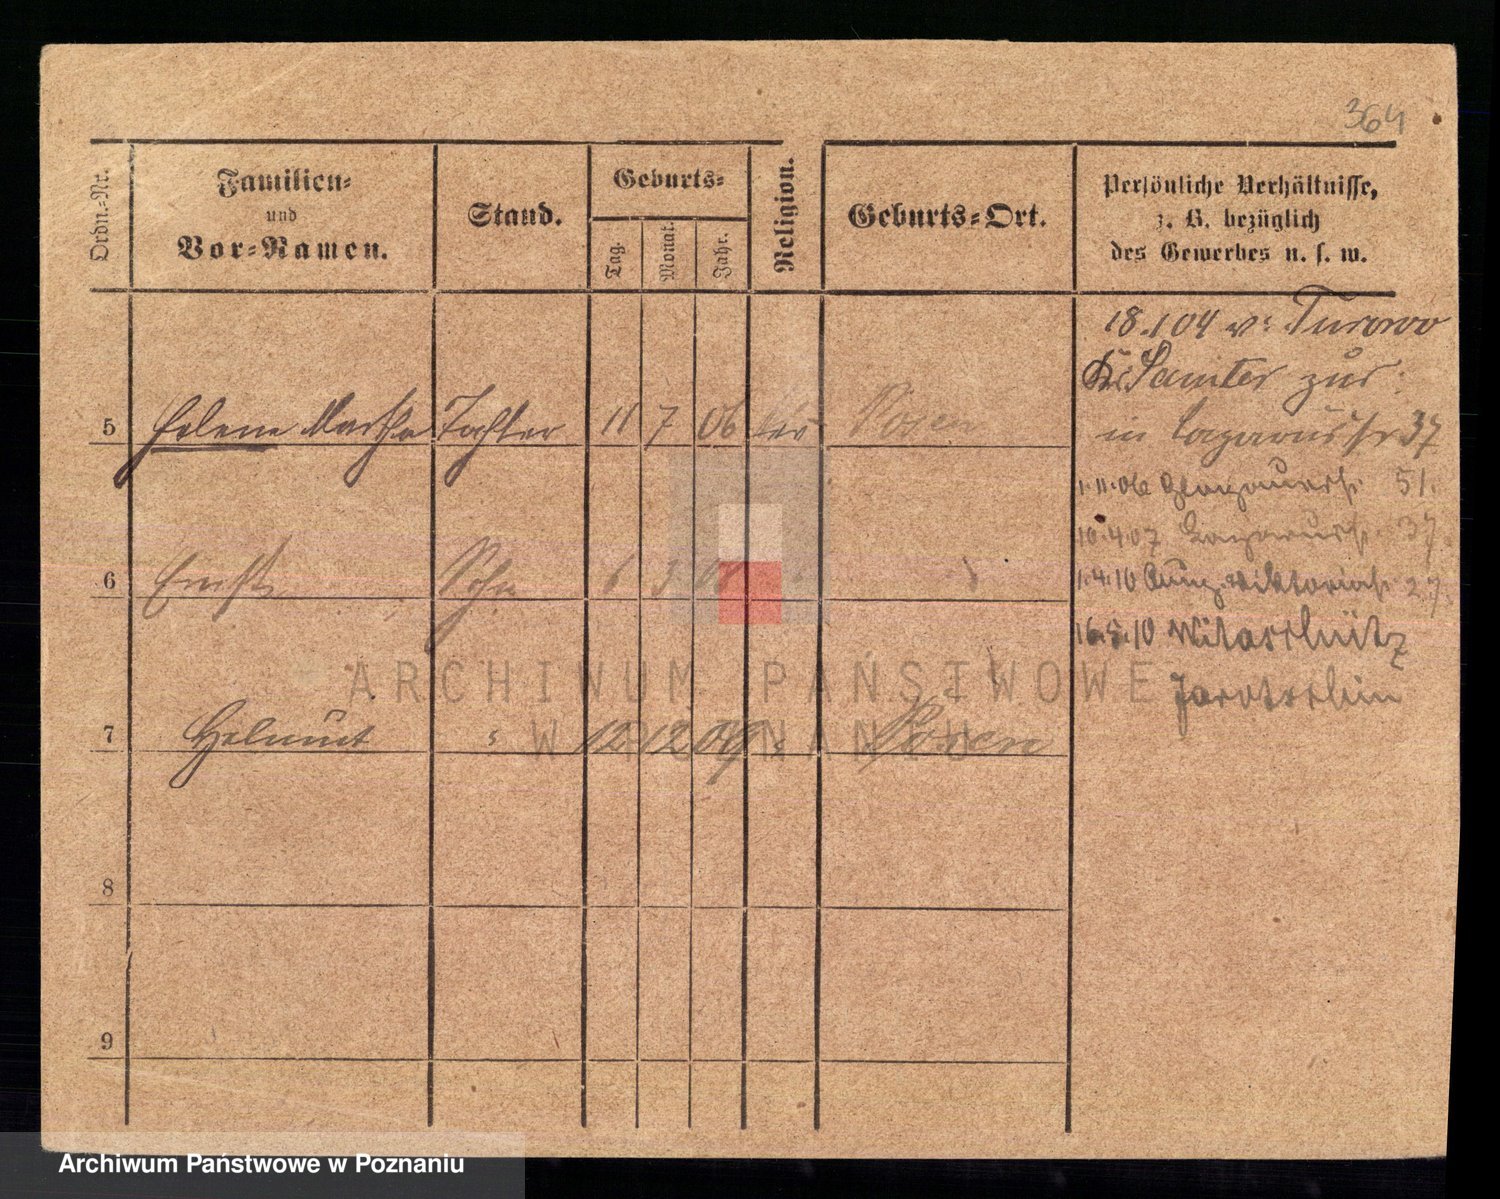 364
Ordn.=Nr.
Familien=
und
Vor=Namen.
Stand.
Geburts=
Tag.
Monat.
Jahr.
Religion.
Geburts=Ort.
Persönliche Verhältnisse,
z. B. bezüglich
des Gewerbes u. s. w.
18.1 04 v: Turowo
Kr. Samter zur:
in Lazarusstr 37
1.11.06 Glogauerstr. 51.
10.4.07 Lazarusstr. 37.
1.4.10 Viktoriastr. 27.
16.8.10 Witaschütz
Jarotschin
5 Helene Martha Tochter 11 7 06 ev Posen
6 Ernst Sohn 6 3
7 Helmut " 12 12 09 " Posen
8
9
ARCHIWUM PAŃSTWOWE
W POZNANIU
Archiwum Państwowe w Poznaniu